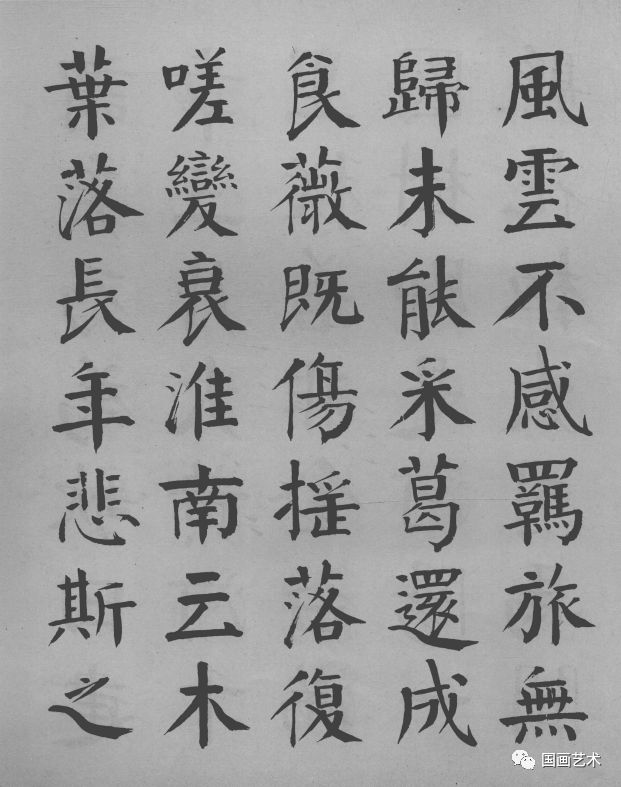 風雲不感羈旅無
歸未能采葛還成
食薇既傷摇落復
嗟變衰淮南云木
葉落長年悲斯之
国画艺术